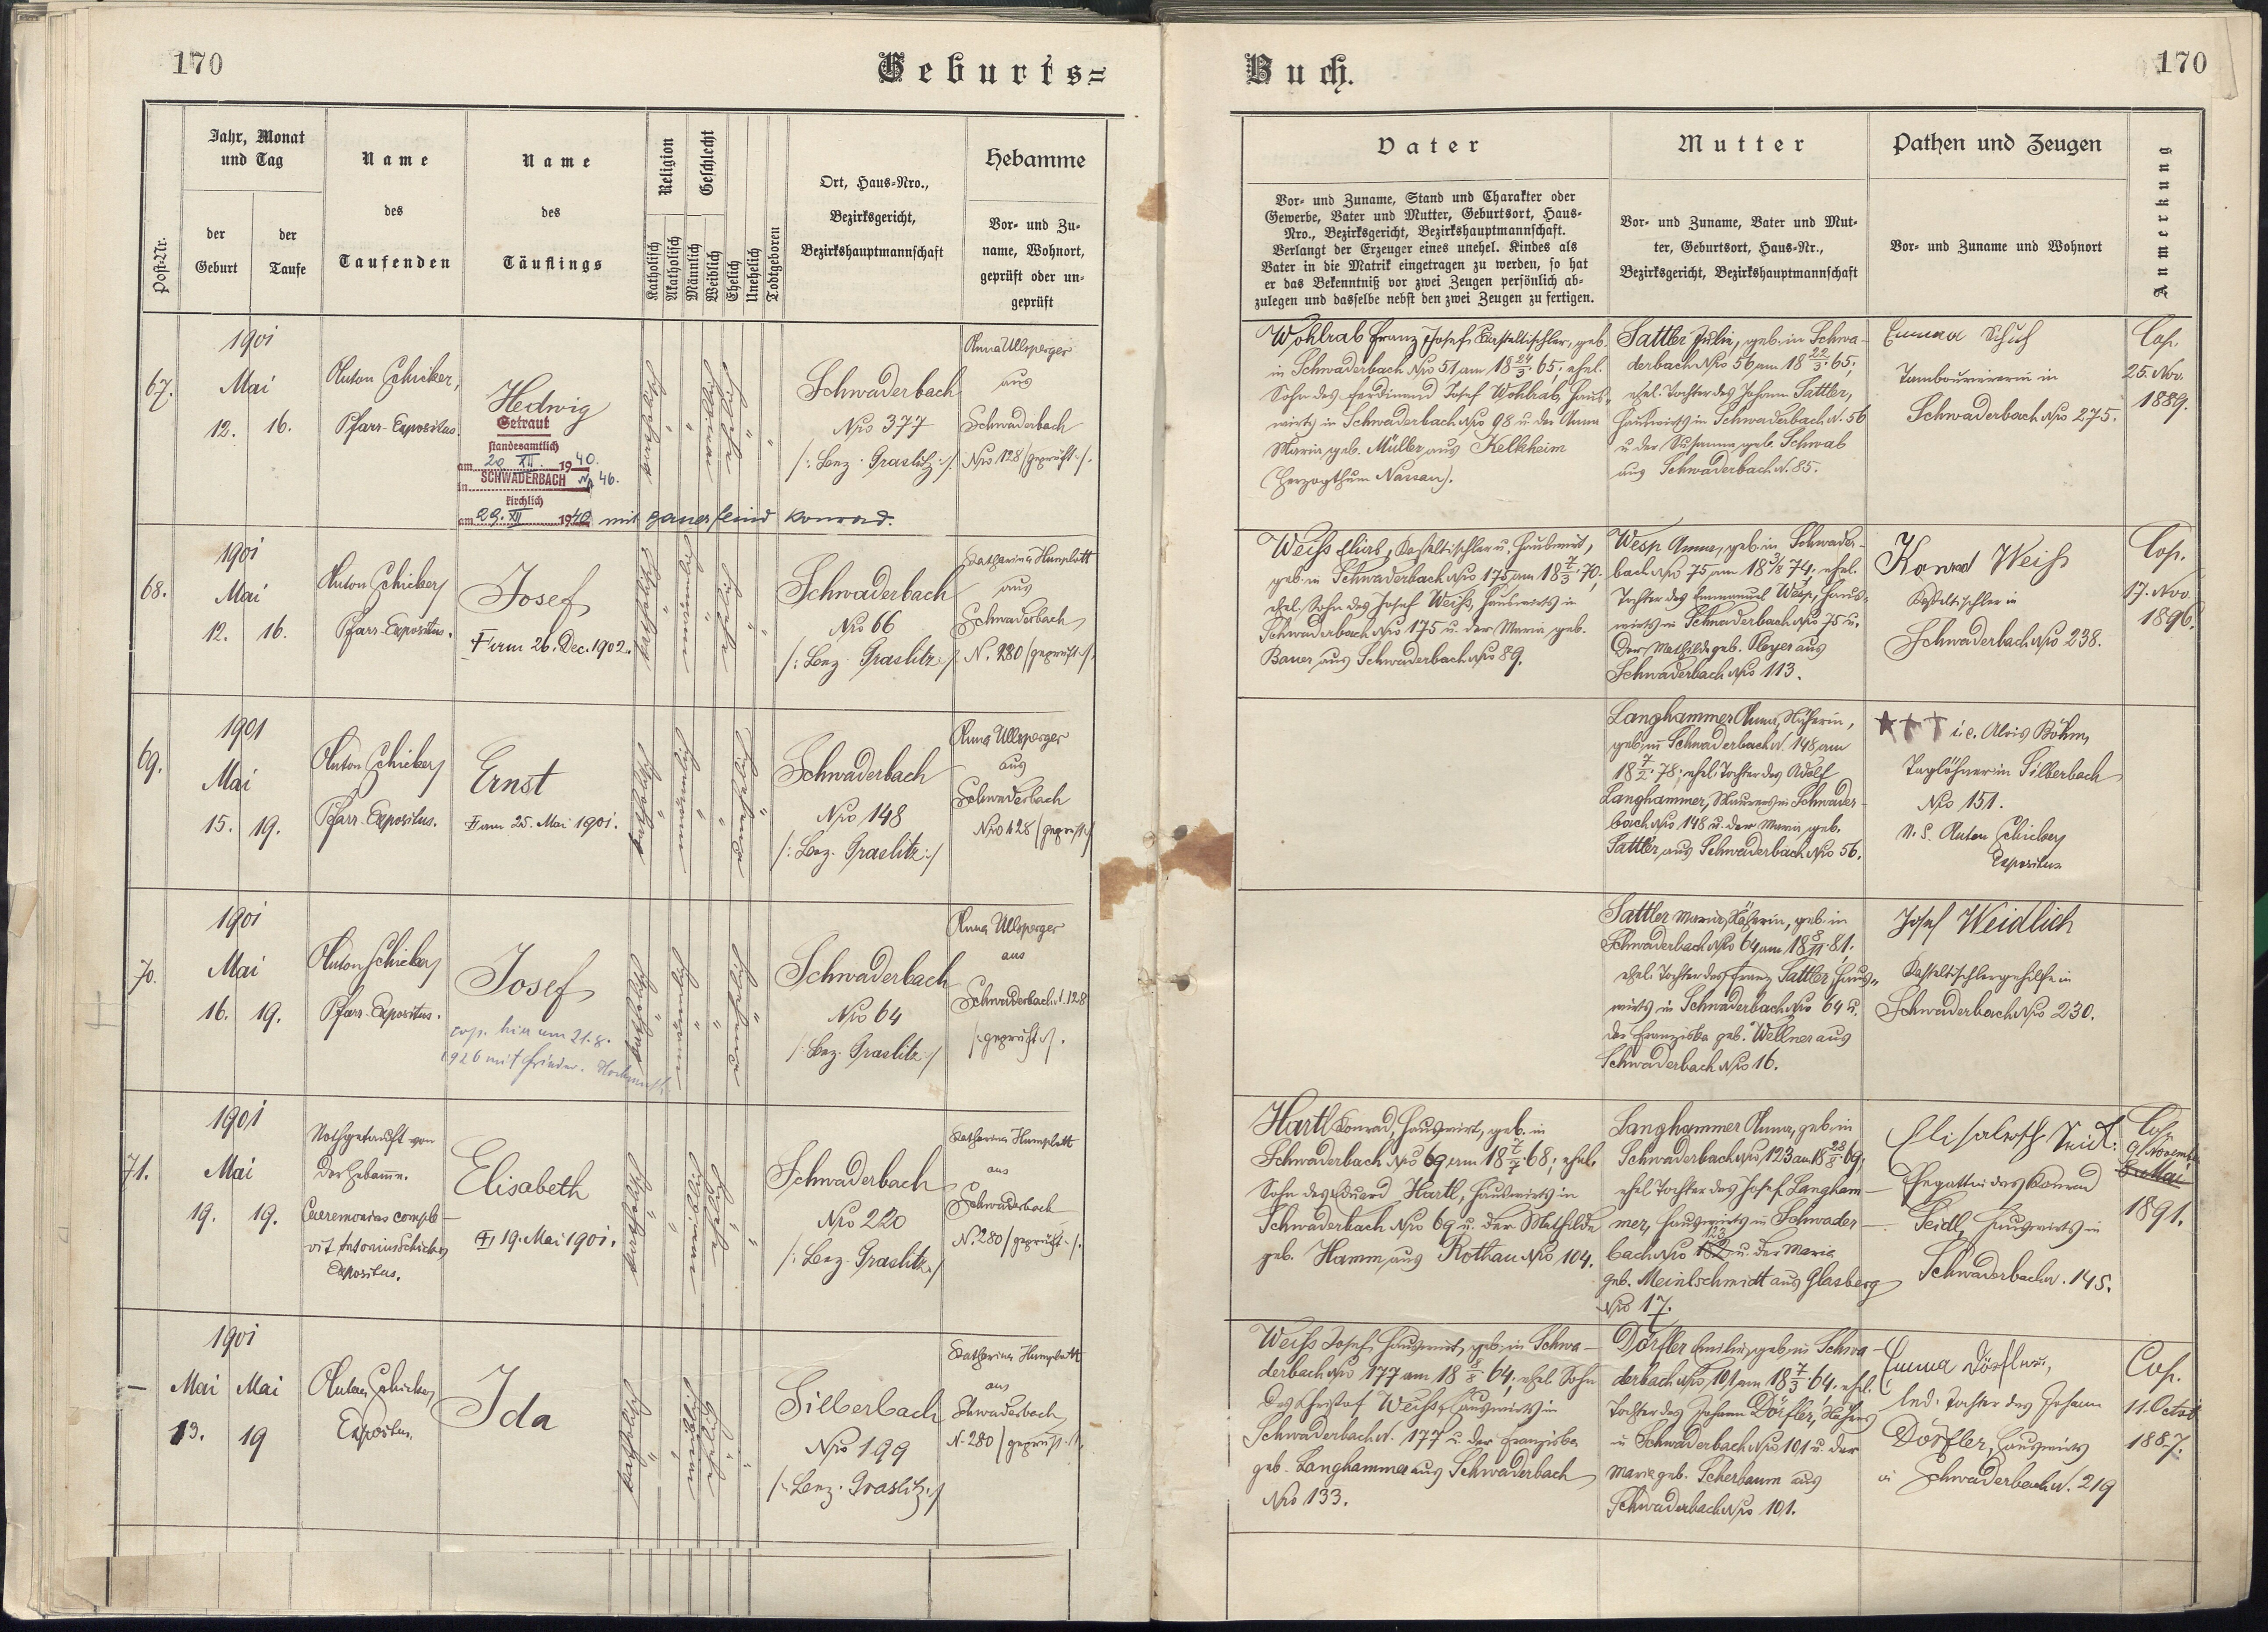 170
Geburts=
Post-Nr.
Jahr, Monat
und Tag
der
Geburt
der
Taufe
Name
des
Taufenden
Name
des
Täuflings
Religion
Katholisch
Akatholisch
Geschlecht
Männlich
Weiblich
Ehelich
Unehelich
Todtgeboren
Ort, Haus-Nro.,
Bezirksgericht,
Bezirkshauptmannschaft
Hebamme
Vor- und Zu-
name, Wohnort,
geprüft oder un-
geprüft
67.
1901
Mai
12. 16.
Anton Schicker,
Pfarr-Expositus.
Hedwig
Getraut
standesamtlich
am 20 XII. 1940.
in SCHWADERBACH No 46.
kirchlich
am 29. XII 1940 mit Konrad.
Schwaderbach
Nro 377
/: Bez. Graslitz :/
Anna Ullsperger
aus
Schwaderbach
Nro 128 /geprüft/.
68.
1901
Mai
12. 16.
Anton Schicker
Pfarr-Expositus.
Josef
† am 26. Dec. 1902.
Schwaderbach
Nro 66
/: Bez. Graslitz :/
Katharina Humplatt
aus
Schwaderbach
N. 280 /geprüft/.
69.
1901
Mai
15. 19.
Anton Schicker
Pfarr-Expositus.
Ernst
† am 25. Mai 1901.
Schwaderbach
Nro 148
/: Bez. Graslitz :/
Anna Ullsperger
aus
Schwaderbach
Nro 128 /geprüft/
70.
1901
Mai
16. 19.
Anton Schicker
Pfarr-Expositus.
Josef
cop. hier am 21. 8.
1926 mit
Schwaderbach
Nro 64
/: Bez. Graslitz :/
Anna Ullsperger
aus
Schwaderbach N. 128
/geprüft/.
71.
1901
Mai
19. 19.
Nothgetauft von
der Hebamme.
Caeremonias comple-
vit Antonius Schicker
Expositus.
Elisabeth
† 19. Mai 1901.
Schwaderbach
Nro 220
/: Bez. Graslitz :/
Katharina Humplatt
aus
Schwaderbach
N. 280 /geprüft/.
—
1901
Mai Mai
13. 19
Anton Schicker,
Expositus.
Ida
Silberbach
Nro 199
/: Bez. Graslitz :/
Katharina Humplatt
aus
Schwaderbach
N. 280 /geprüft/.
Buch.
170
Vater
Vor- und Zuname, Stand und Charakter oder
Gewerbe, Vater und Mutter, Geburtsort, Haus-
Nro., Bezirksgericht, Bezirkshauptmannschaft.
Verlangt der Erzeuger eines unehel. Kindes als
Vater in die Matrik eingetragen zu werden, so hat
er das Bekenntniß vor zwei Zeugen persönlich ab-
zulegen und dasselbe nebst den zwei Zeugen zu fertigen.
Mutter
Vor- und Zuname, Vater und Mut-
ter, Geburtsort, Haus-Nr.,
Bezirksgericht, Bezirkshauptmannschaft
Pathen und Zeugen
Vor- und Zuname und Wohnort
Anmerkung
Wohlrab Franz Josef, Kasteltischler, geb.
in Schwaderbach Nro 51 am 18 24/3 65; ehel.
Sohn des Ferdinand Josef Wohlrab, Haus-
wirts in Schwaderbach Nro 98 u. der Anna
Maria geb. Müller aus Kelkheim
(Herzogthum Nassau).
Sattler Julie, geb. in Schwa-
derbach Nro 56 am 18 22/3 65;
ehel. Tochter des Johann Sattler,
Hauswirts in Schwaderbach N. 56
u. der Susanna geb. Schwab
aus Schwaderbach N. 85.
Emma Schuh
Tambouriererin in
Schwaderbach Nro 275.
Cop.
25. Nov.
1889.
Weiß Elias, Kasteltischler u. Hauswirt,
geb. in Schwaderbach Nro 175 am 18 7/3 70;
ehel. Sohn des Josef Weiß, Hauswirts in
Schwaderbach Nro 175 u. der Maria geb.
Bauer aus Schwaderbach Nro 89.
Wesp Anna, geb. in Schwader-
bach Nro 75 am 18 74; ehel.
Tochter des Emmanuel Wesp, Haus-
wirts in Schwaderbach Nro 75 u.
der Mathilde geb. Pleyer aus
Schwaderbach Nro 113.
Konrad Weiß
Kasteltischler in
Schwaderbach Nro 238.
Cop.
17. Nov.
1896.
Langhammer Anna, Näherin,
geb. in Schwaderbach N. 148 am
18 7/2 78; ehel. Tochter des Adolf
Langhammer, Maurers in Schwader-
bach Nro 148 u. der Maria geb.
Sattler aus Schwaderbach Nro 56.
††† i. e. Alois Böhm,
Taglöhner in Silberbach
Nro 151.
N. S. Anton Schicker
Expositus
Sattler Maria, Näherin, geb. in
Schwaderbach Nro 64 am 18 8/11 81.
ehel. Tochter des Franz Sattler, Haus-
wirts in Schwaderbach Nro 64 u.
der Franziska geb. Wellner aus
Schwaderbach Nro 16.
Josef Weidlich
Kasteltischlergehilfe in
Schwaderbach Nro 230.
Hartl Konrad, Hauswirt, geb. in
Schwaderbach Nro 69 am 18 7/7 68; ehel.
Sohn des Eduard Hartl, Hauswirts in
Schwaderbach Nro 69 u. der Mathilde
geb. Hamm aus Rothau Nro 104.
Langhammer Anna, geb. in
Schwaderbach Nro 123 am 18 28/8 69;
ehel. Tochter des Josef Langham-
mer, Hauswirts in Schwader-
bach Nro 123 u. der Maria
geb. Meinlschmidt aus Glasberg
Nro 17.
Elisabeth Seidl:
Ehegattin des Konrad
Seidl, Hauswirts in
Schwaderbach N. 145.
Cop.
9. November
Mai
1891.
Weiß Josef, Hauswirt, geb. in Schwa-
derbach Nro 177 am 18 8/8 64; ehel. Sohn
des Christof Weiß, Hauswirts in
Schwaderbach N. 177 u. der Franziska
geb. Langhammer aus Schwaderbach
Nro 133.
Dörfler Emilie, geb. in Schwa-
derbach Nro 101 am 18 7/3 64; ehel.
Tochter des Johann Dörfler,
in Schwaderbach Nro 101 u. der
Maria geb. Scherbaum aus
Schwaderbach Nro 101.
Emma Dörfler,
led. Tochter des Johann
Dörfler, Hauswirts
in Schwaderbach N. 219
Cop.
11. Octob
1887.